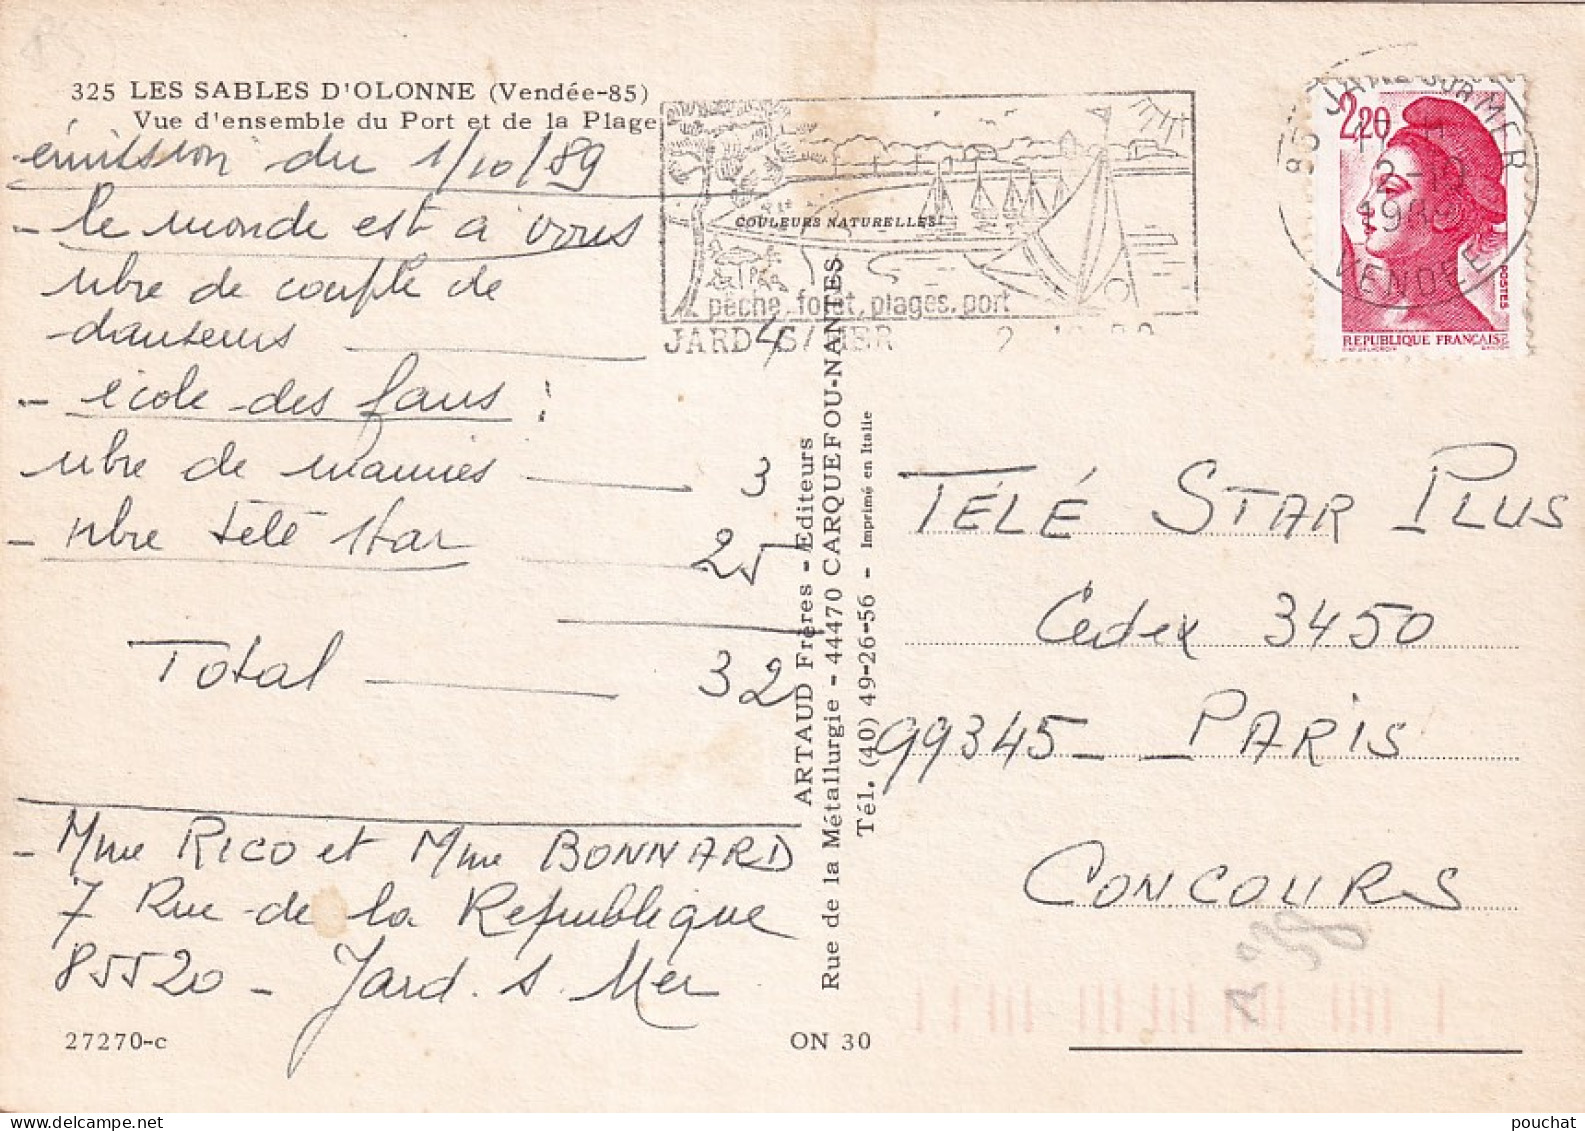 325 LES SABLES D'OLONNE (Vendée-85)
Vue d'ensemble du Port et de la Plage
émission du 1/10/89
- le monde est à vous
nbre de couple de
danseurs 4
- école des fans :
nbre de mamies 3
- nbre télé star 25
Total 32
- Mme RICO et Mme BONNARD
7 Rue de la République
85520 - Jard. s. Mer
27270-c
ON 30
COULEURS NATURELLES
pêche, forêt, plages, port
JARD S/MER
ARTAUD Frères - Editeurs
Rue de la Métallurgie - 44470 CARQUEFOU-NANTES
Tél. (40) 49-26-56 - Imprimé en Italie
VENDEE
2,20
POSTES
REPUBLIQUE FRANÇAISE
TÉLÉ STAR PLUS
Cedex 3450
99345 - PARIS
CONCOURS
pouchat